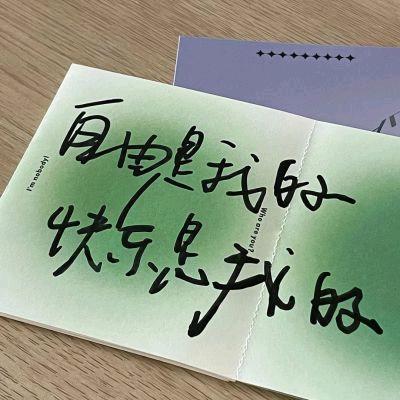 自由是我的
快乐是我的
I'm nobody!
Who are you?